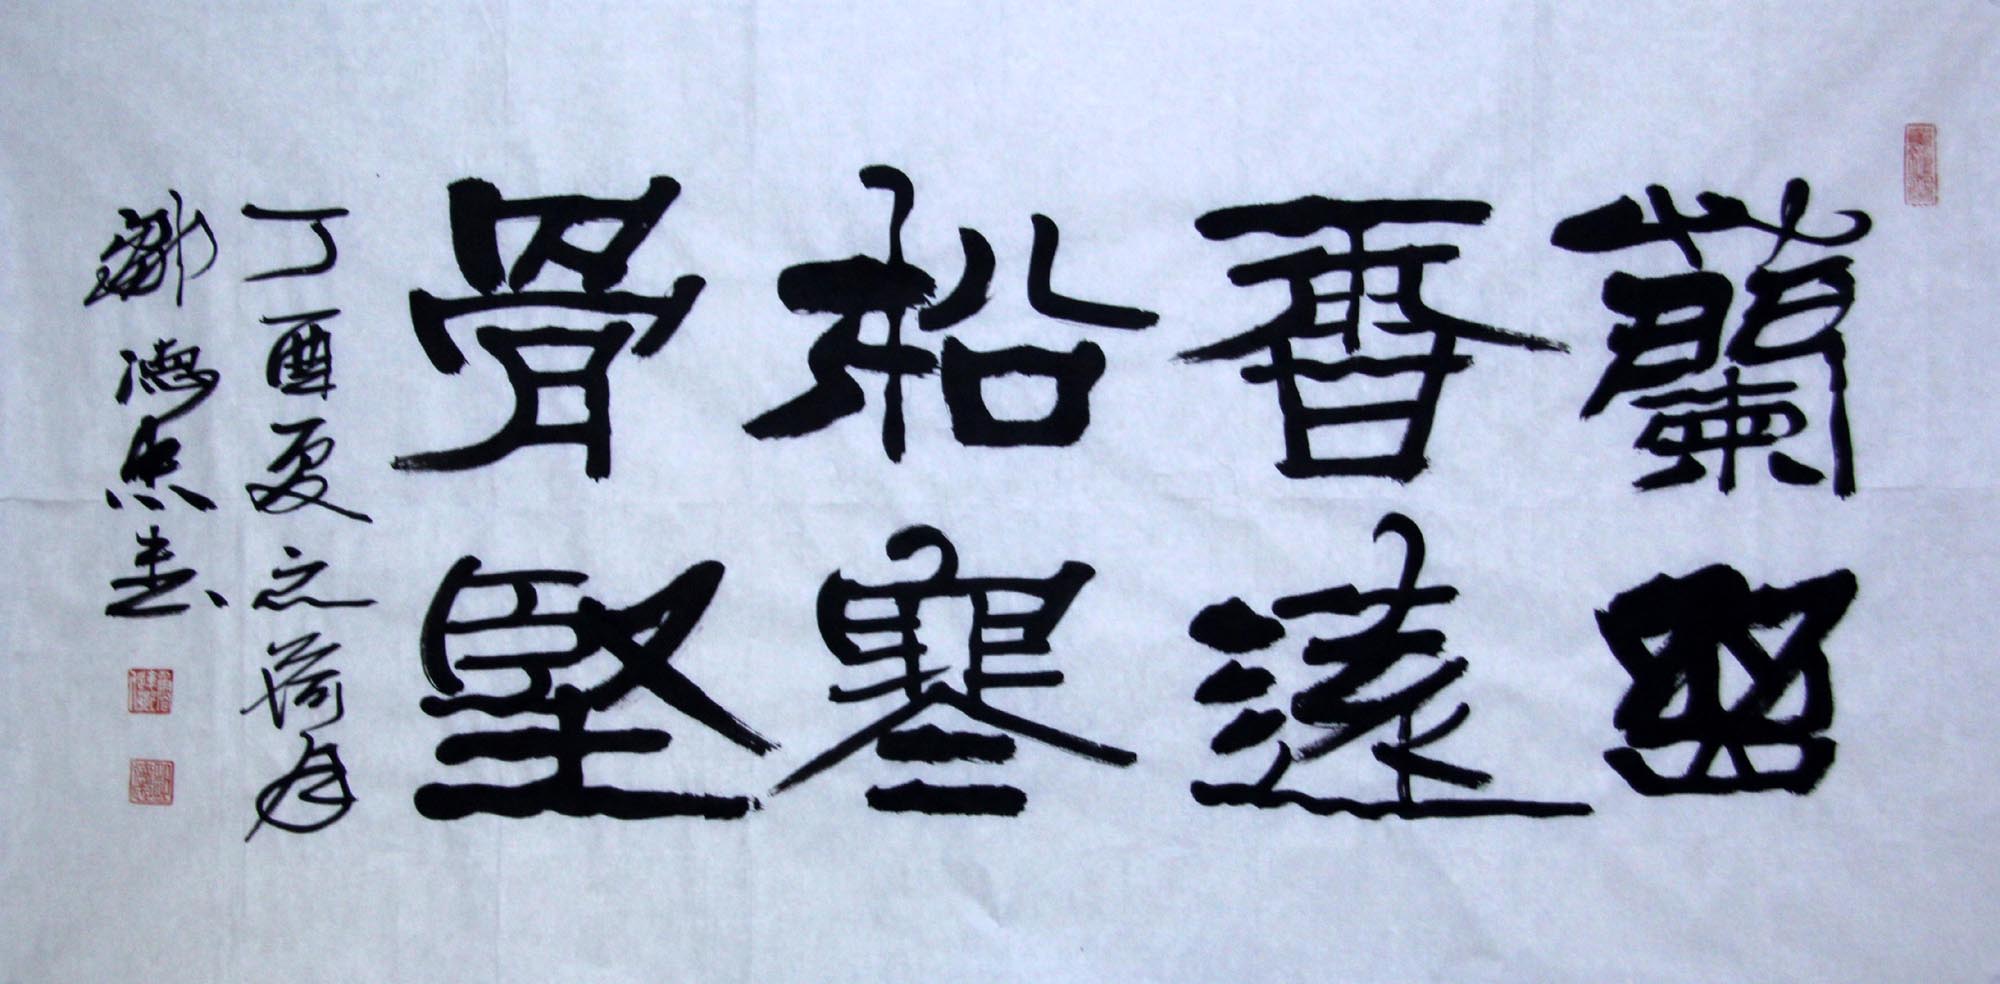 蘭幽
香遠
松寒
骨堅
丁酉夏之荷月
鄧德忠書